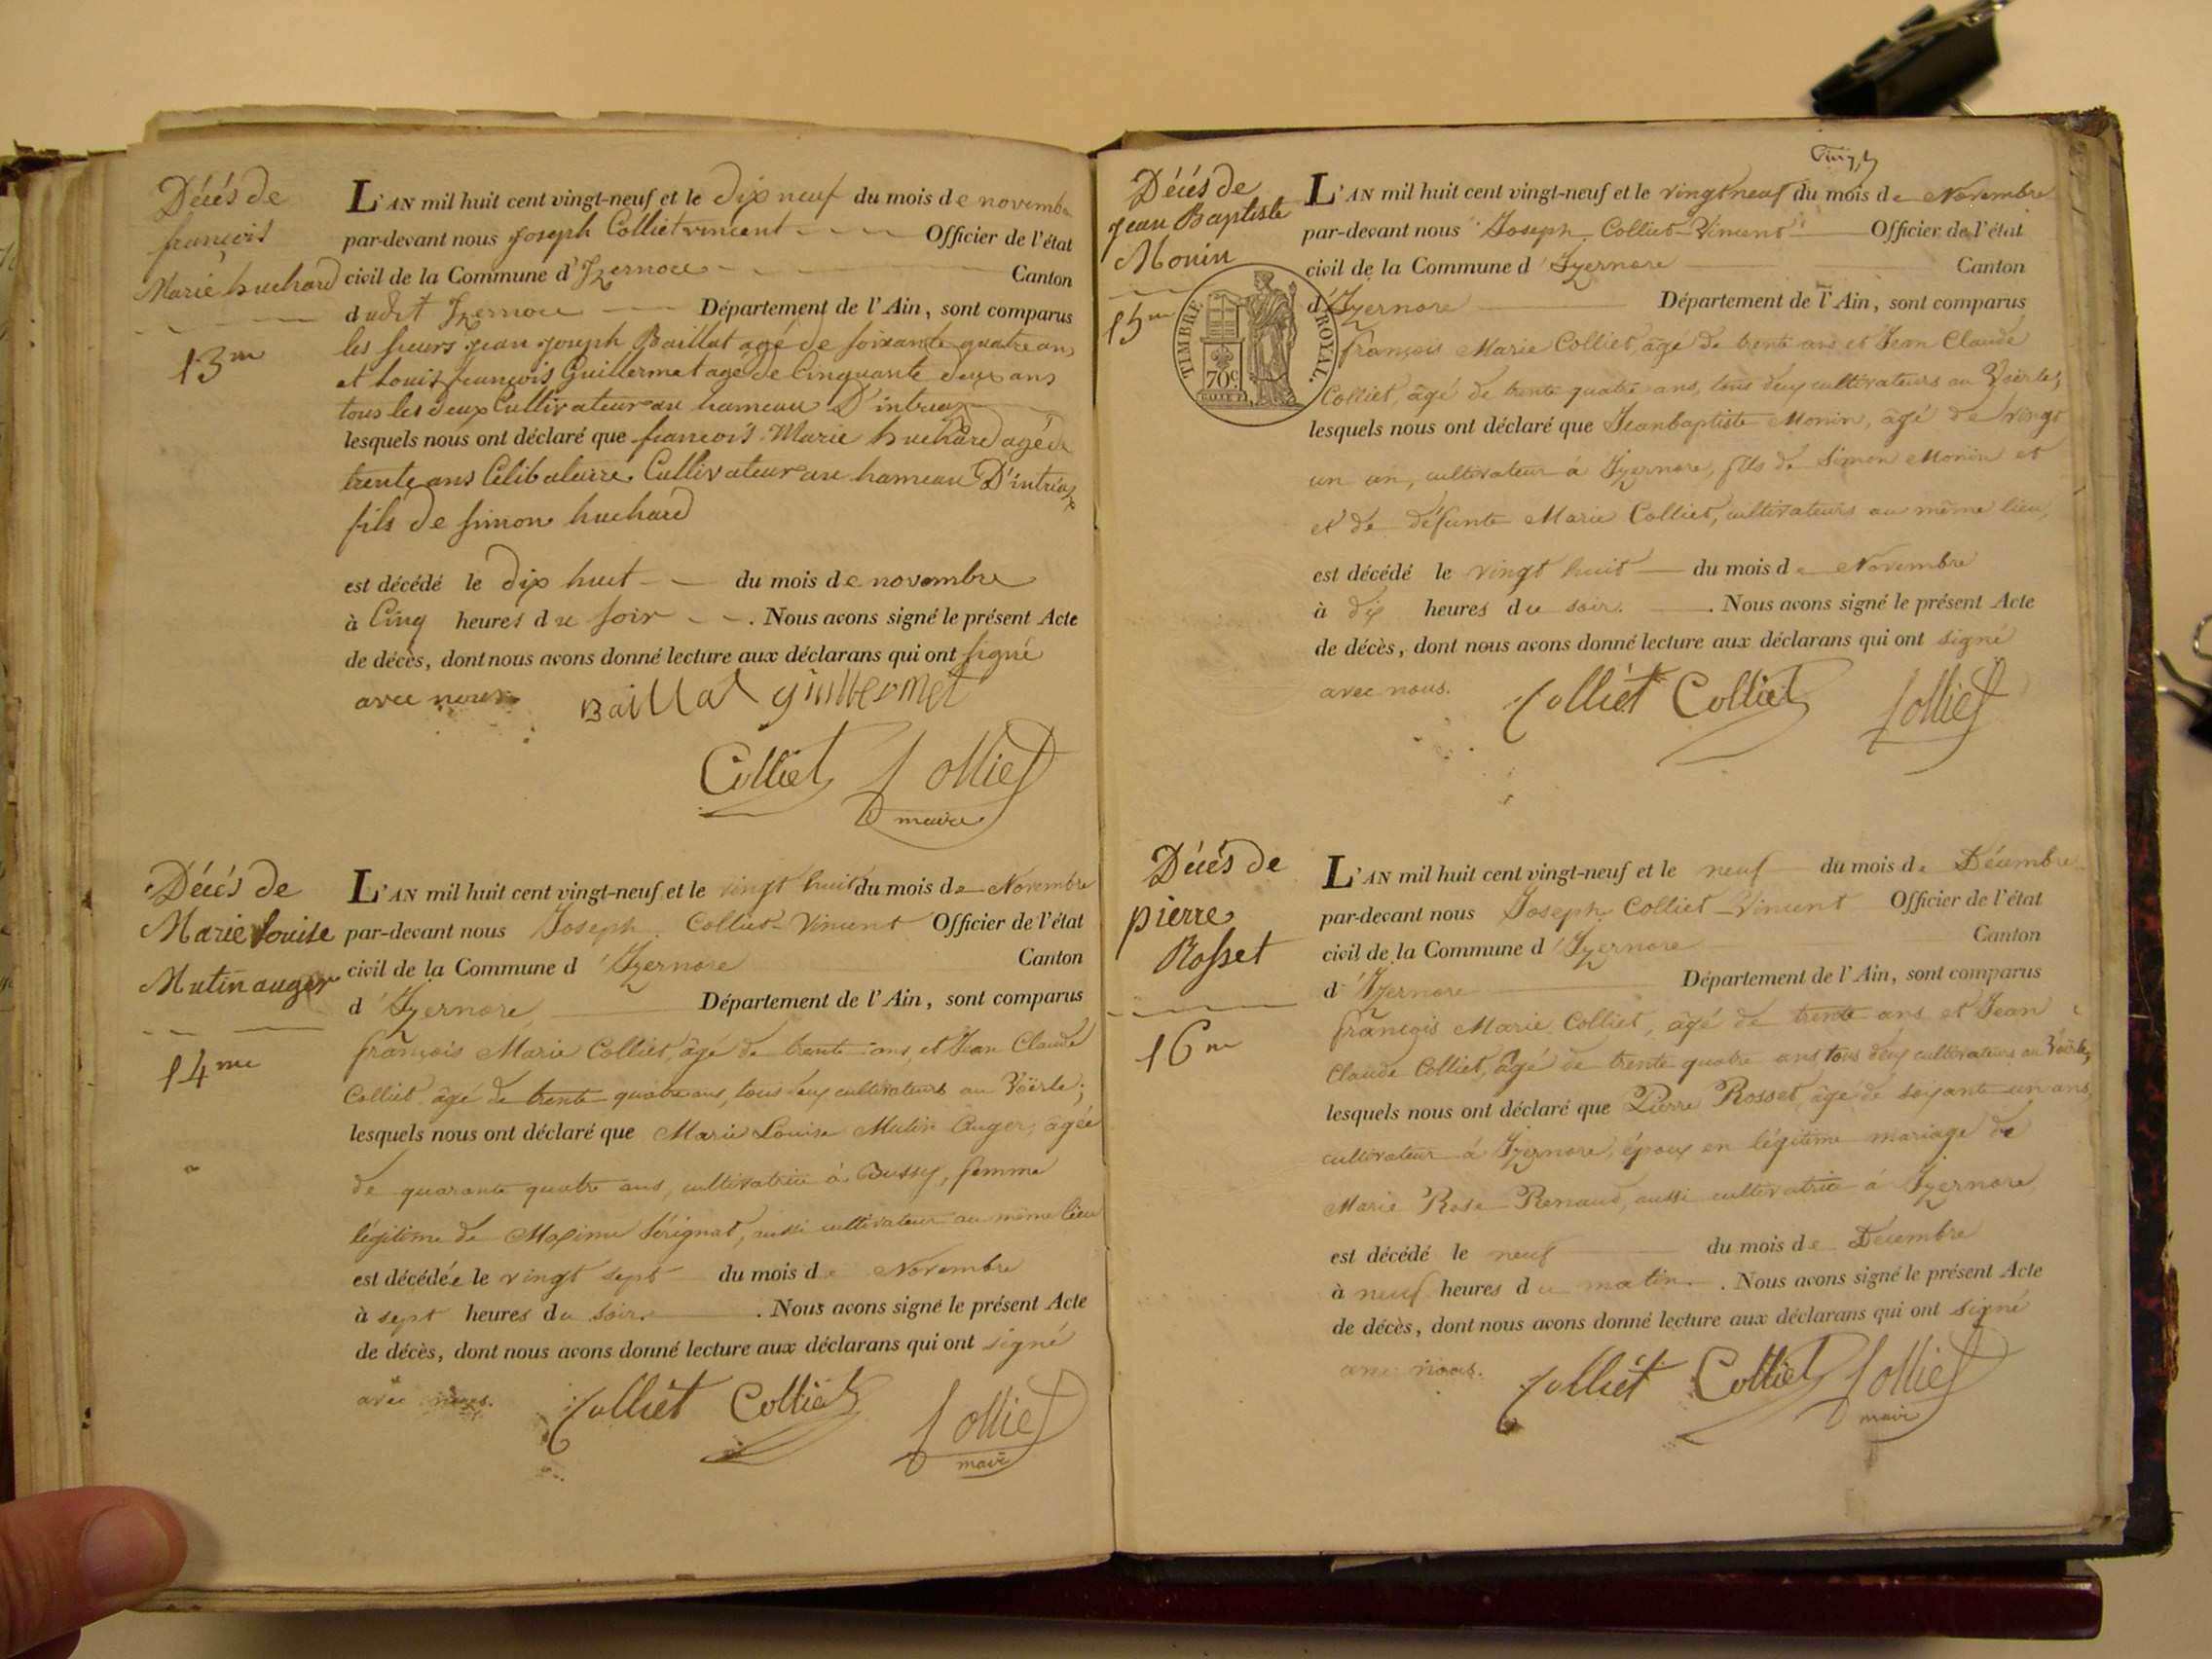 Décés de
françois
Marie huchard
13me
L'AN mil huit cent vingt-neuf et le dix neuf du mois de novembre
par-devant nous joseph Colliet vincent Officier de l'état
civil de la Commune d'Izernore Canton
dudit Izernore Département de l'Ain, sont comparus
les sieurs jean joseph Baillat agé de soixante quatre ans
et Louis françois Guillermet agé de Cinquante deux ans
tous les deux Cultivateur au hameau D'intriaz
lesquels nous ont déclaré que françois Marie huchard agé de
trente ans Célibataire Cultivateur au hameau D'intriaz
fils de simon huchard
est décédé le dix huit du mois de novembre
à Cinq heures du soir . Nous avons signé le présent Acte
de décès, dont nous avons donné lecture aux déclarans qui ont signé
avec nous
Baillat guillermet
Colliet Colliet
maire
Décés de
Marie Louise
Mutin auger
14me
L'AN mil huit cent vingt-neuf et le vingt huit du mois de Novembre
par-devant nous Joseph Colliet-Vincent Officier de l'état
civil de la Commune d'Izernore Canton
d'Izernore Département de l'Ain, sont comparus
françois Marie Colliet, âgé de trente ans, et Jean Claude
Colliet, âgé de trente quatre ans, tous deux cultivateurs au Voërle;
lesquels nous ont déclaré que Marie Louise Mutin Auger, agée
de quarante quatre ans, cultivatrice à Bussy, femme
légitime de Maxime Sérignat, aussi cultivateur au même lieu
est décédée le vingt sept du mois de Novembre
à sept heures du soir. . Nous avons signé le présent Acte
de décès, dont nous avons donné lecture aux déclarans qui ont signé
avec nous.
Colliet Colliet Colliet
maire
Vingt
Décés de
jean Baptiste
Monin
15me
TIMBRE ROYAL.
70c
L'AN mil huit cent vingt-neuf et le vingt neuf du mois de Novembre
par-devant nous Joseph Colliet-Vincent Officier de l'état
civil de la Commune d'Izernore Canton
d'Izernore Département de l'Ain, sont comparus
françois Marie Colliet, âgé de trente ans et Jean Claude
Colliet, âgé de trente quatre ans, tous deux cultivateurs au Voërle;
lesquels nous ont déclaré que Jean baptiste Monin, âgé de vingt
un an, cultivateur à Izernore, fils de Simon Monin et
et de défunte Marie Colliet, cultivateurs au même lieu,
est décédé le vingt huit du mois de Novembre
à dix heures du soir. . Nous avons signé le présent Acte
de décès, dont nous avons donné lecture aux déclarans qui ont signé
avec nous.
Colliet Colliet Colliet
Décés de
pierre
Rosset
16me
L'AN mil huit cent vingt-neuf et le neuf du mois de Décembre
par-devant nous Joseph Colliet-Vincent Officier de l'état
civil de la Commune d'Izernore Canton
d'Izernore Département de l'Ain, sont comparus
françois Marie Colliet, âgé de trente ans et Jean
Claude Colliet, âgé de trente quatre ans tous deux cultivateurs au Voërle,
lesquels nous ont déclaré que Pierre Rosset, âgé de soixante un ans,
cultivateur à Izernore, époux en légitime mariage de
Marie Rose Renaud, aussi cultivatrice à Izernore
est décédé le neuf du mois de Décembre
à neuf heures du matin. . Nous avons signé le présent Acte
de décès, dont nous avons donné lecture aux déclarans qui ont signé
avec nous.
Colliet Colliet Colliet
maire